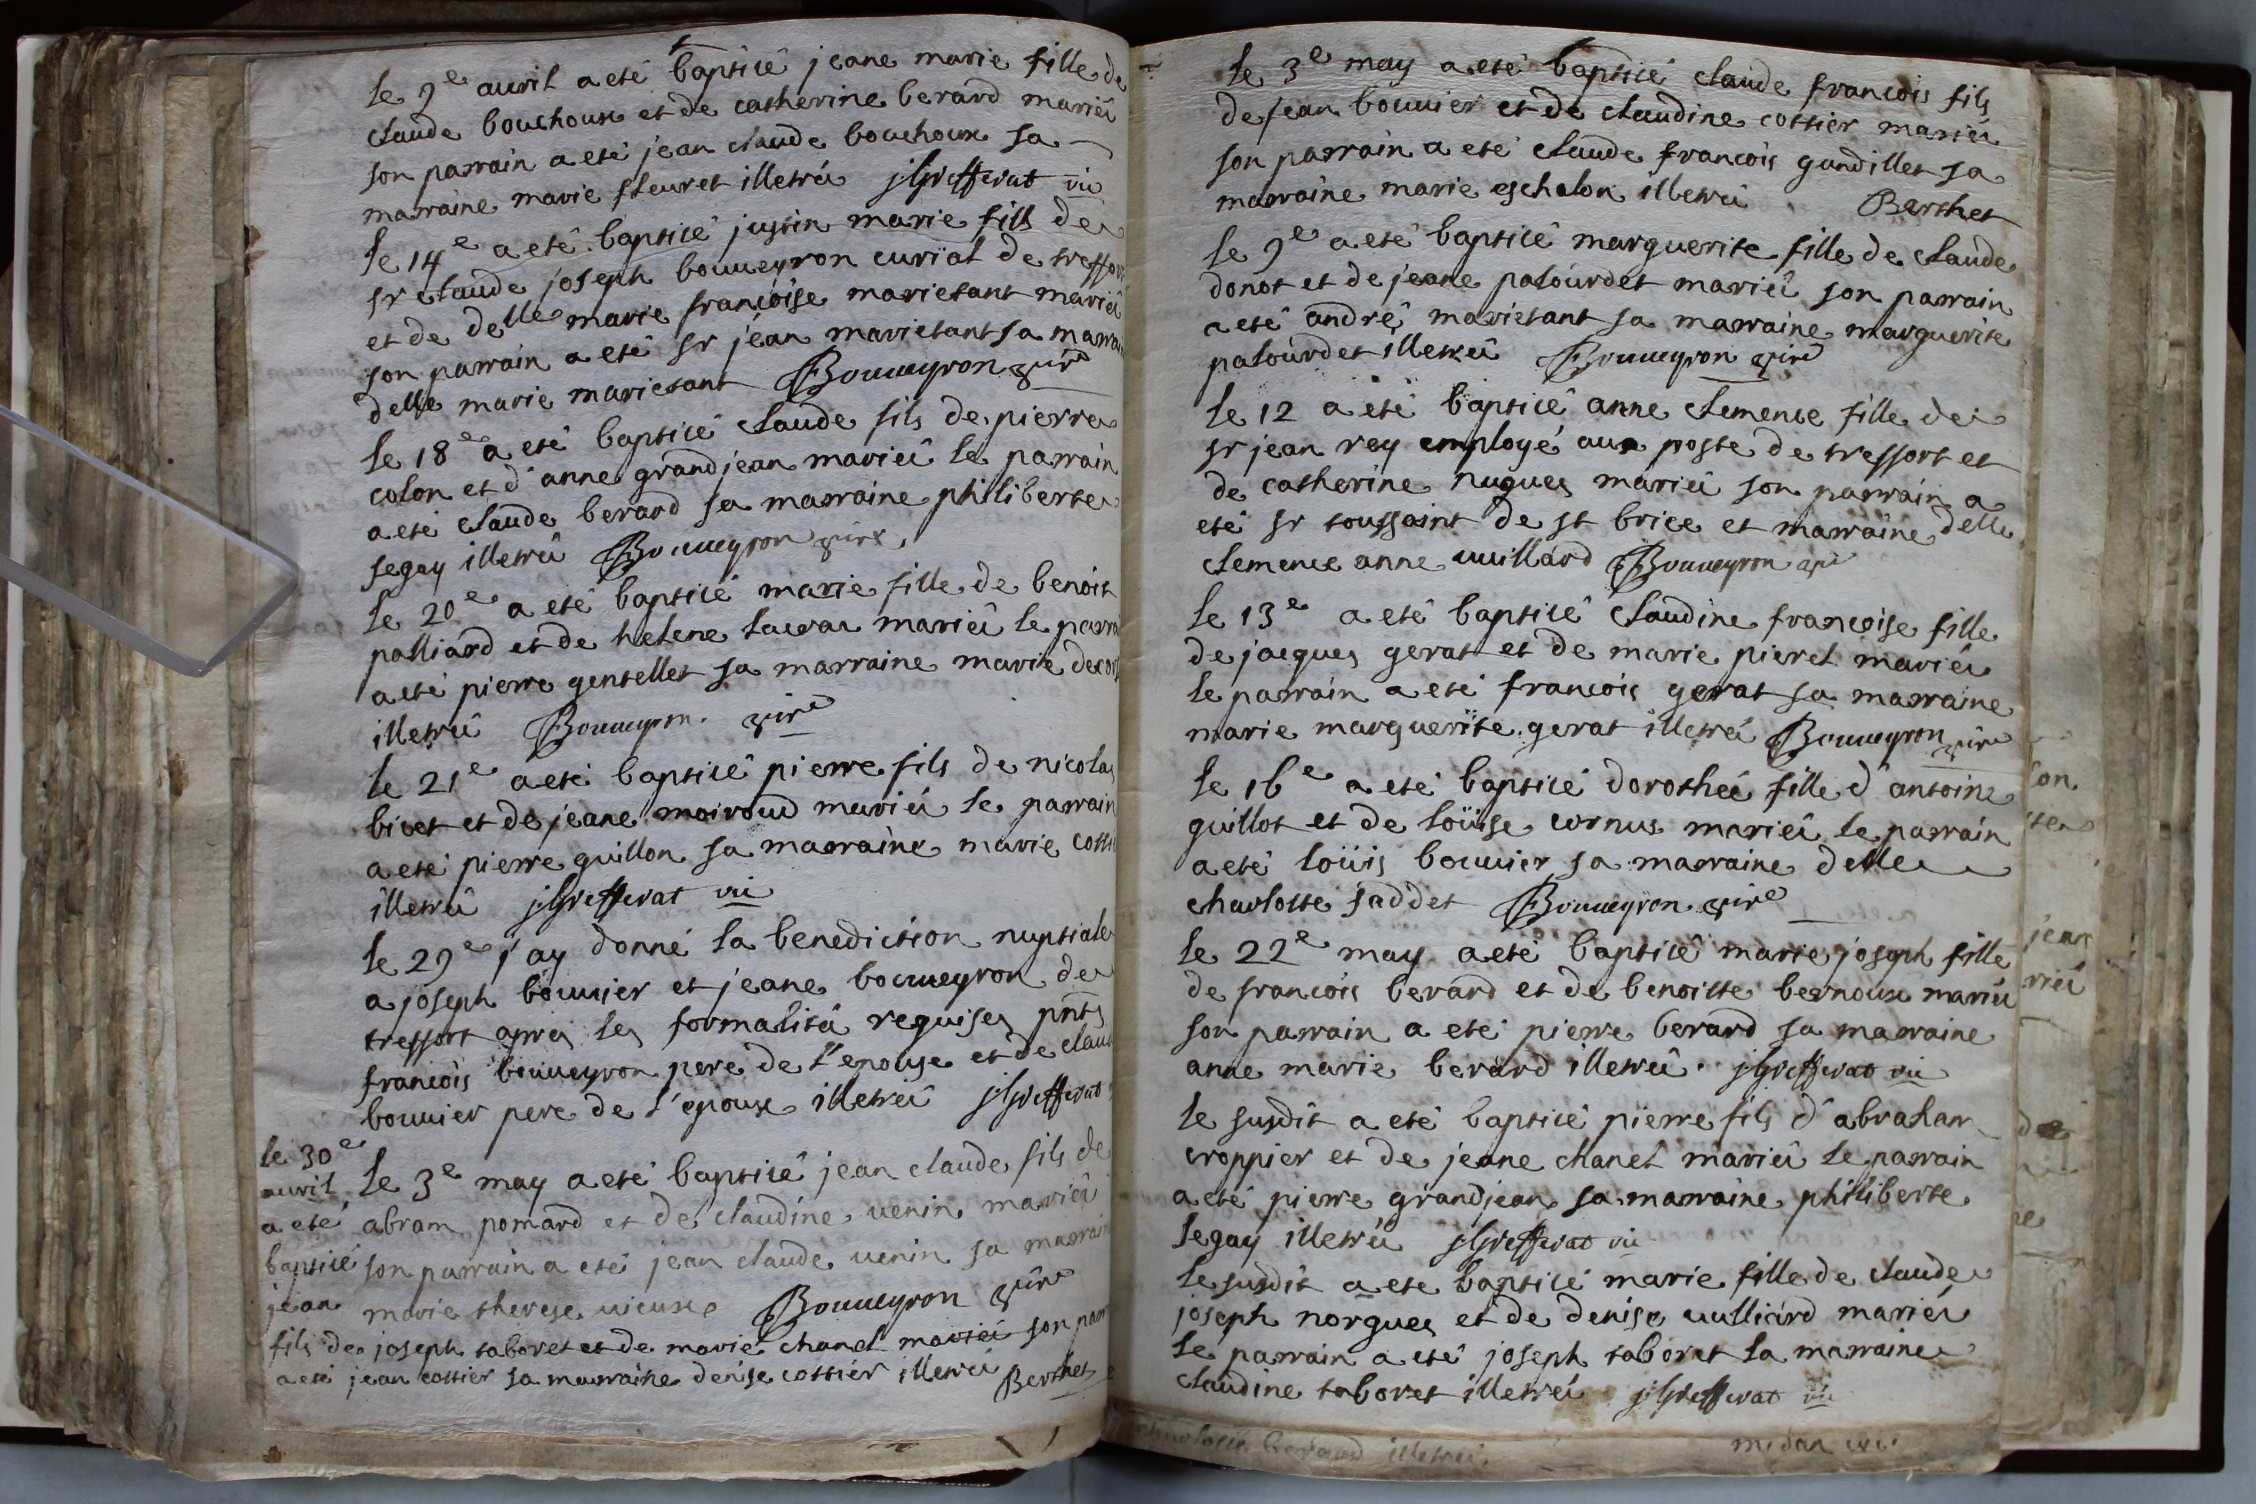 le 9e avril a eté baptisé jeane marie fille de
claude bouchoux et de catherine berard mariéz
son parrain a eté jean claude bouchoux sa
marraine marie fleuret illetréz jlgrefferat vic
le 14e a eté baptisé justin marie fils de
sr claude joseph bouveyron curial de treffort
et de delle marie françoise marietant mariéz
son parrain a eté sr jean marietant sa marrai
delle marie marietant Bouveyron vire
le 18e a eté baptisé claude fils de pierre
colon et d'anne grandjean mariéz le parrain
a eté claude berard sa marraine philiberte
segay illetréz Bouveyron vire
le 20e a eté baptisé marie fille de benoit
palliard et de helene mariéz le parra
a eté pierre gentellet sa marraine marie
illetréz Bouveyron vire
le 21e a eté baptisé pierre fils de nicolas
bicet et de jeane moiroud mariéz le parrain
a eté pierre guillon sa marraine marie cotti
illetréz jlgrefferat vic
le 29e j'ay donné la benediction nuptiale
a joseph bouvier et jeane bouveyron de
treffort apres les formalitéz requises pnts
françois bouveyron pere de l'epouse et de claud
bouvier pere de l'epoux illetréz jlgrefferat
le 3e may a eté baptisé jean claude fils de
abram pomard et de claudine venin mariéz
son parrain a eté jean claude venin sa marrain
marie therese vieux Bouveyron vire
le 30e
avril
a eté
baptisé
jean
fils de joseph taboret et de marie chanel mariéz son parr
a eté jean cottier sa marraine denise cottier illetréz Berthet
le 3e may a eté baptisé claude françois fils
de jean bouvier et de claudine cottier mariéz
son parrain a eté claude françois gandillet sa
marraine marie eschalon illetréz Berthet
le 9e a eté baptisé marguerite fille de claude
donot et de jeane palourdet mariéz son parrain
a eté andré marietant sa marraine marguerite
palourdet illetréz Bouveyron vire
le 12 a eté baptisé anne clemence fille de
sr jean rey employé aux poste de treffort et
de catherine nugues mariéz son parrain a
eté sr toussaint de st brice et marraine delle
clemence anne vuillard Bouveyron vre
le 13e a eté baptisé claudine françoise fille
de jacques gerat et de marie pierel mariéz
le parrain a eté françois gerat sa marraine
marie marguerite gerat illetréz Bouveyron vire
le 16e a eté baptisé dorothée fille d'antoine
guillot et de loüise cornus mariéz le parrain
a eté loüis bouvier sa marraine delle
charlotte faddet Bouveyron vire
le 22e may a eté baptisé marie joseph fille
de françois berard et de benoitte bernoux mariéz
son parrain a eté pierre berard sa marraine
anne marie berard illetréz jlgrefferat vic
le susdit a eté baptisé pierre fils d'abraham
croppier et de jeane chanel mariéz le parrain
a eté pierre grandjean sa marraine philiberte
segay illetréz jlgrefferat vic
le susdit a eté baptisé marie fille de claude
joseph norgues et de denise vulliard mariéz
le parrain a eté joseph taboret la marraine
claudine taboret illetréz jlgrefferat vic
illetréz